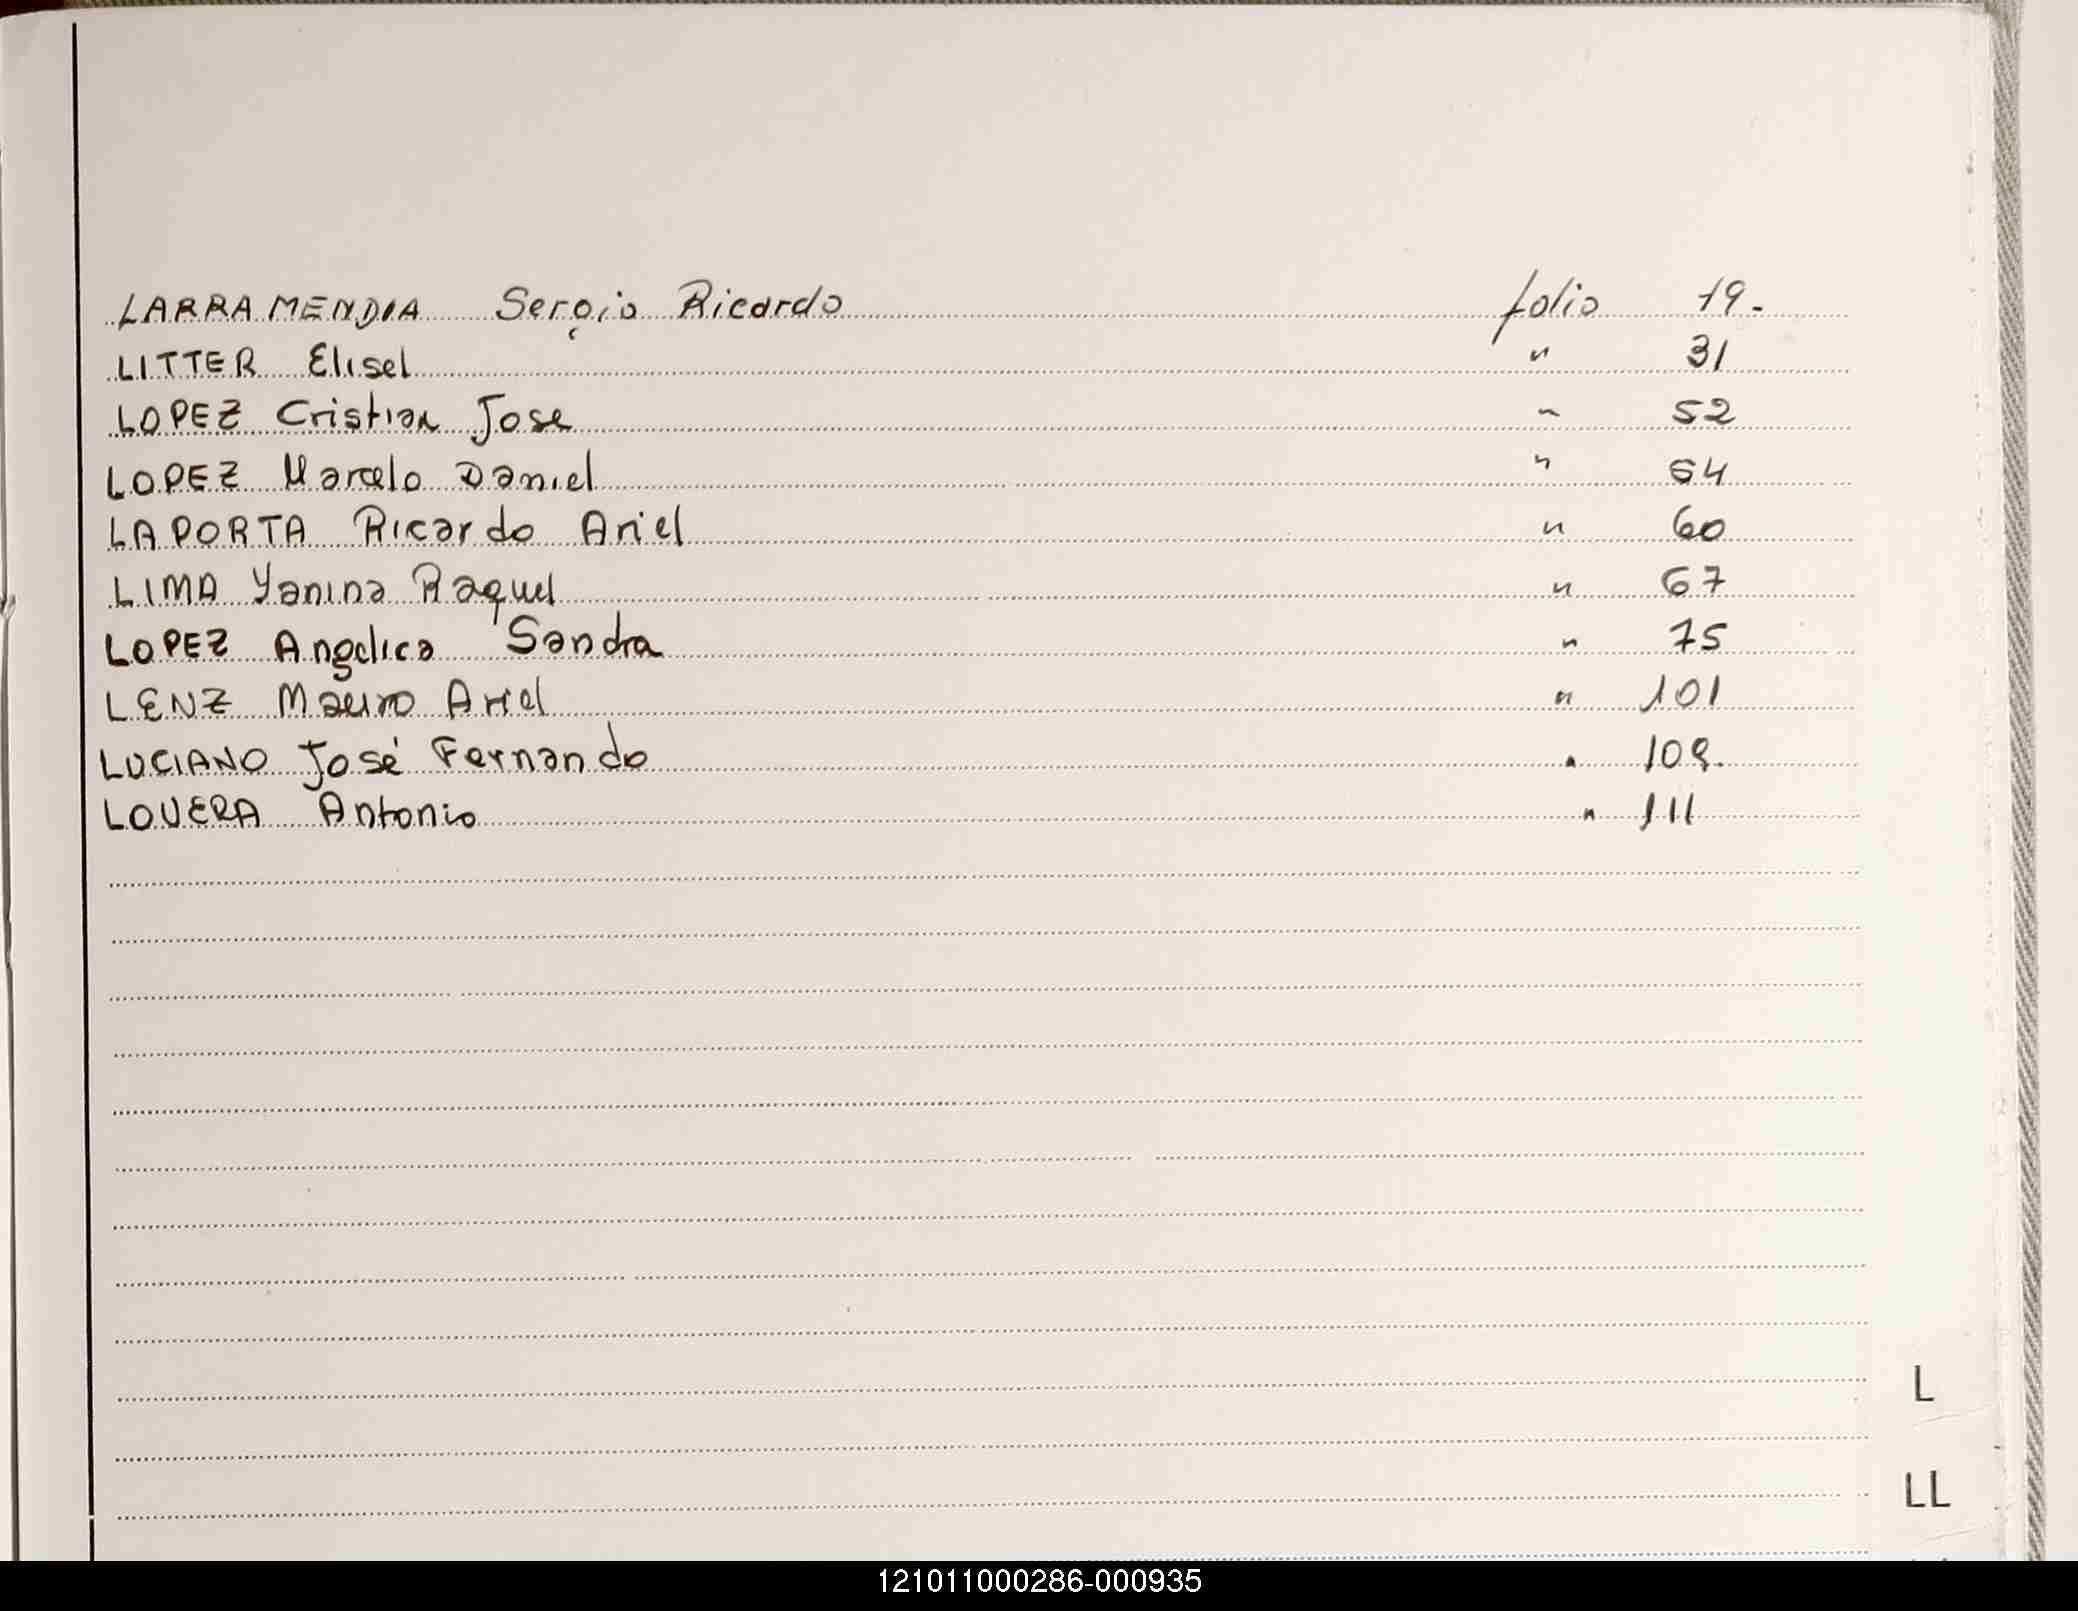 LARRAMENDIA Sergio Ricardo folio 19.
LITTER Elisel " 31
LOPEZ Cristian Jose " 52
LOPEZ Marcelo Daniel " 54
LAPORTA Ricardo Ariel " 60
LIMA Yanina Raquel " 67
LOPEZ Angelica Sandra " 75
LENZ Mauro Ariel " 101
LUCIANO José Fernando " 109.
LOVERA Antonio " 111
L
LL
121011000286-000935